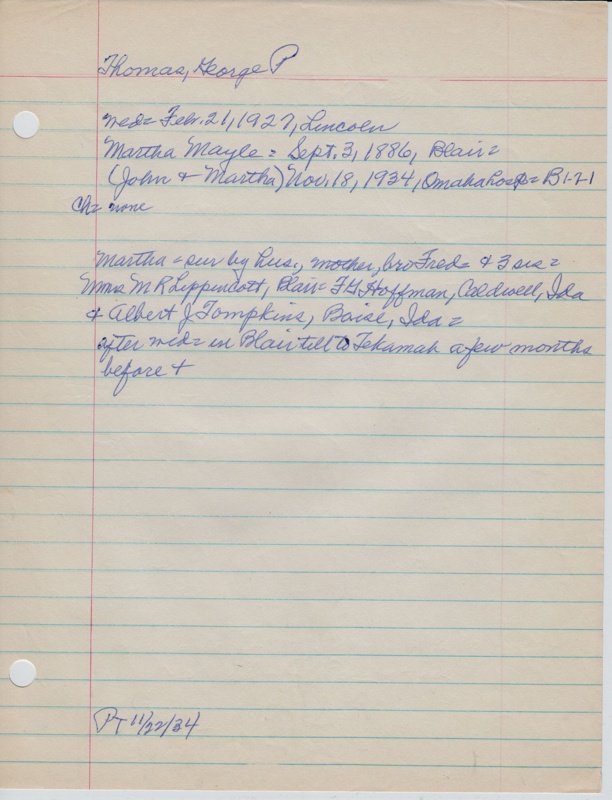 Thomas, George P
wed= Feb. 21, 1927, Lincoln
Martha Mayle = Sept. 3, 1886, Blair=
(John & Martha) Nov. 18, 1934, Omaha hosp= B1-2-1
Ch= none
Martha = sur by hus., mother, bro Fred= & 3 sis=
Mmes M R Lippincott, Blair= F G Hoffman, Caldwell, Ida
& Albert J Tompkins, Boise, Ida=
after wed= in Blair till to Tekamah a few months
before +
PT 11/22/34